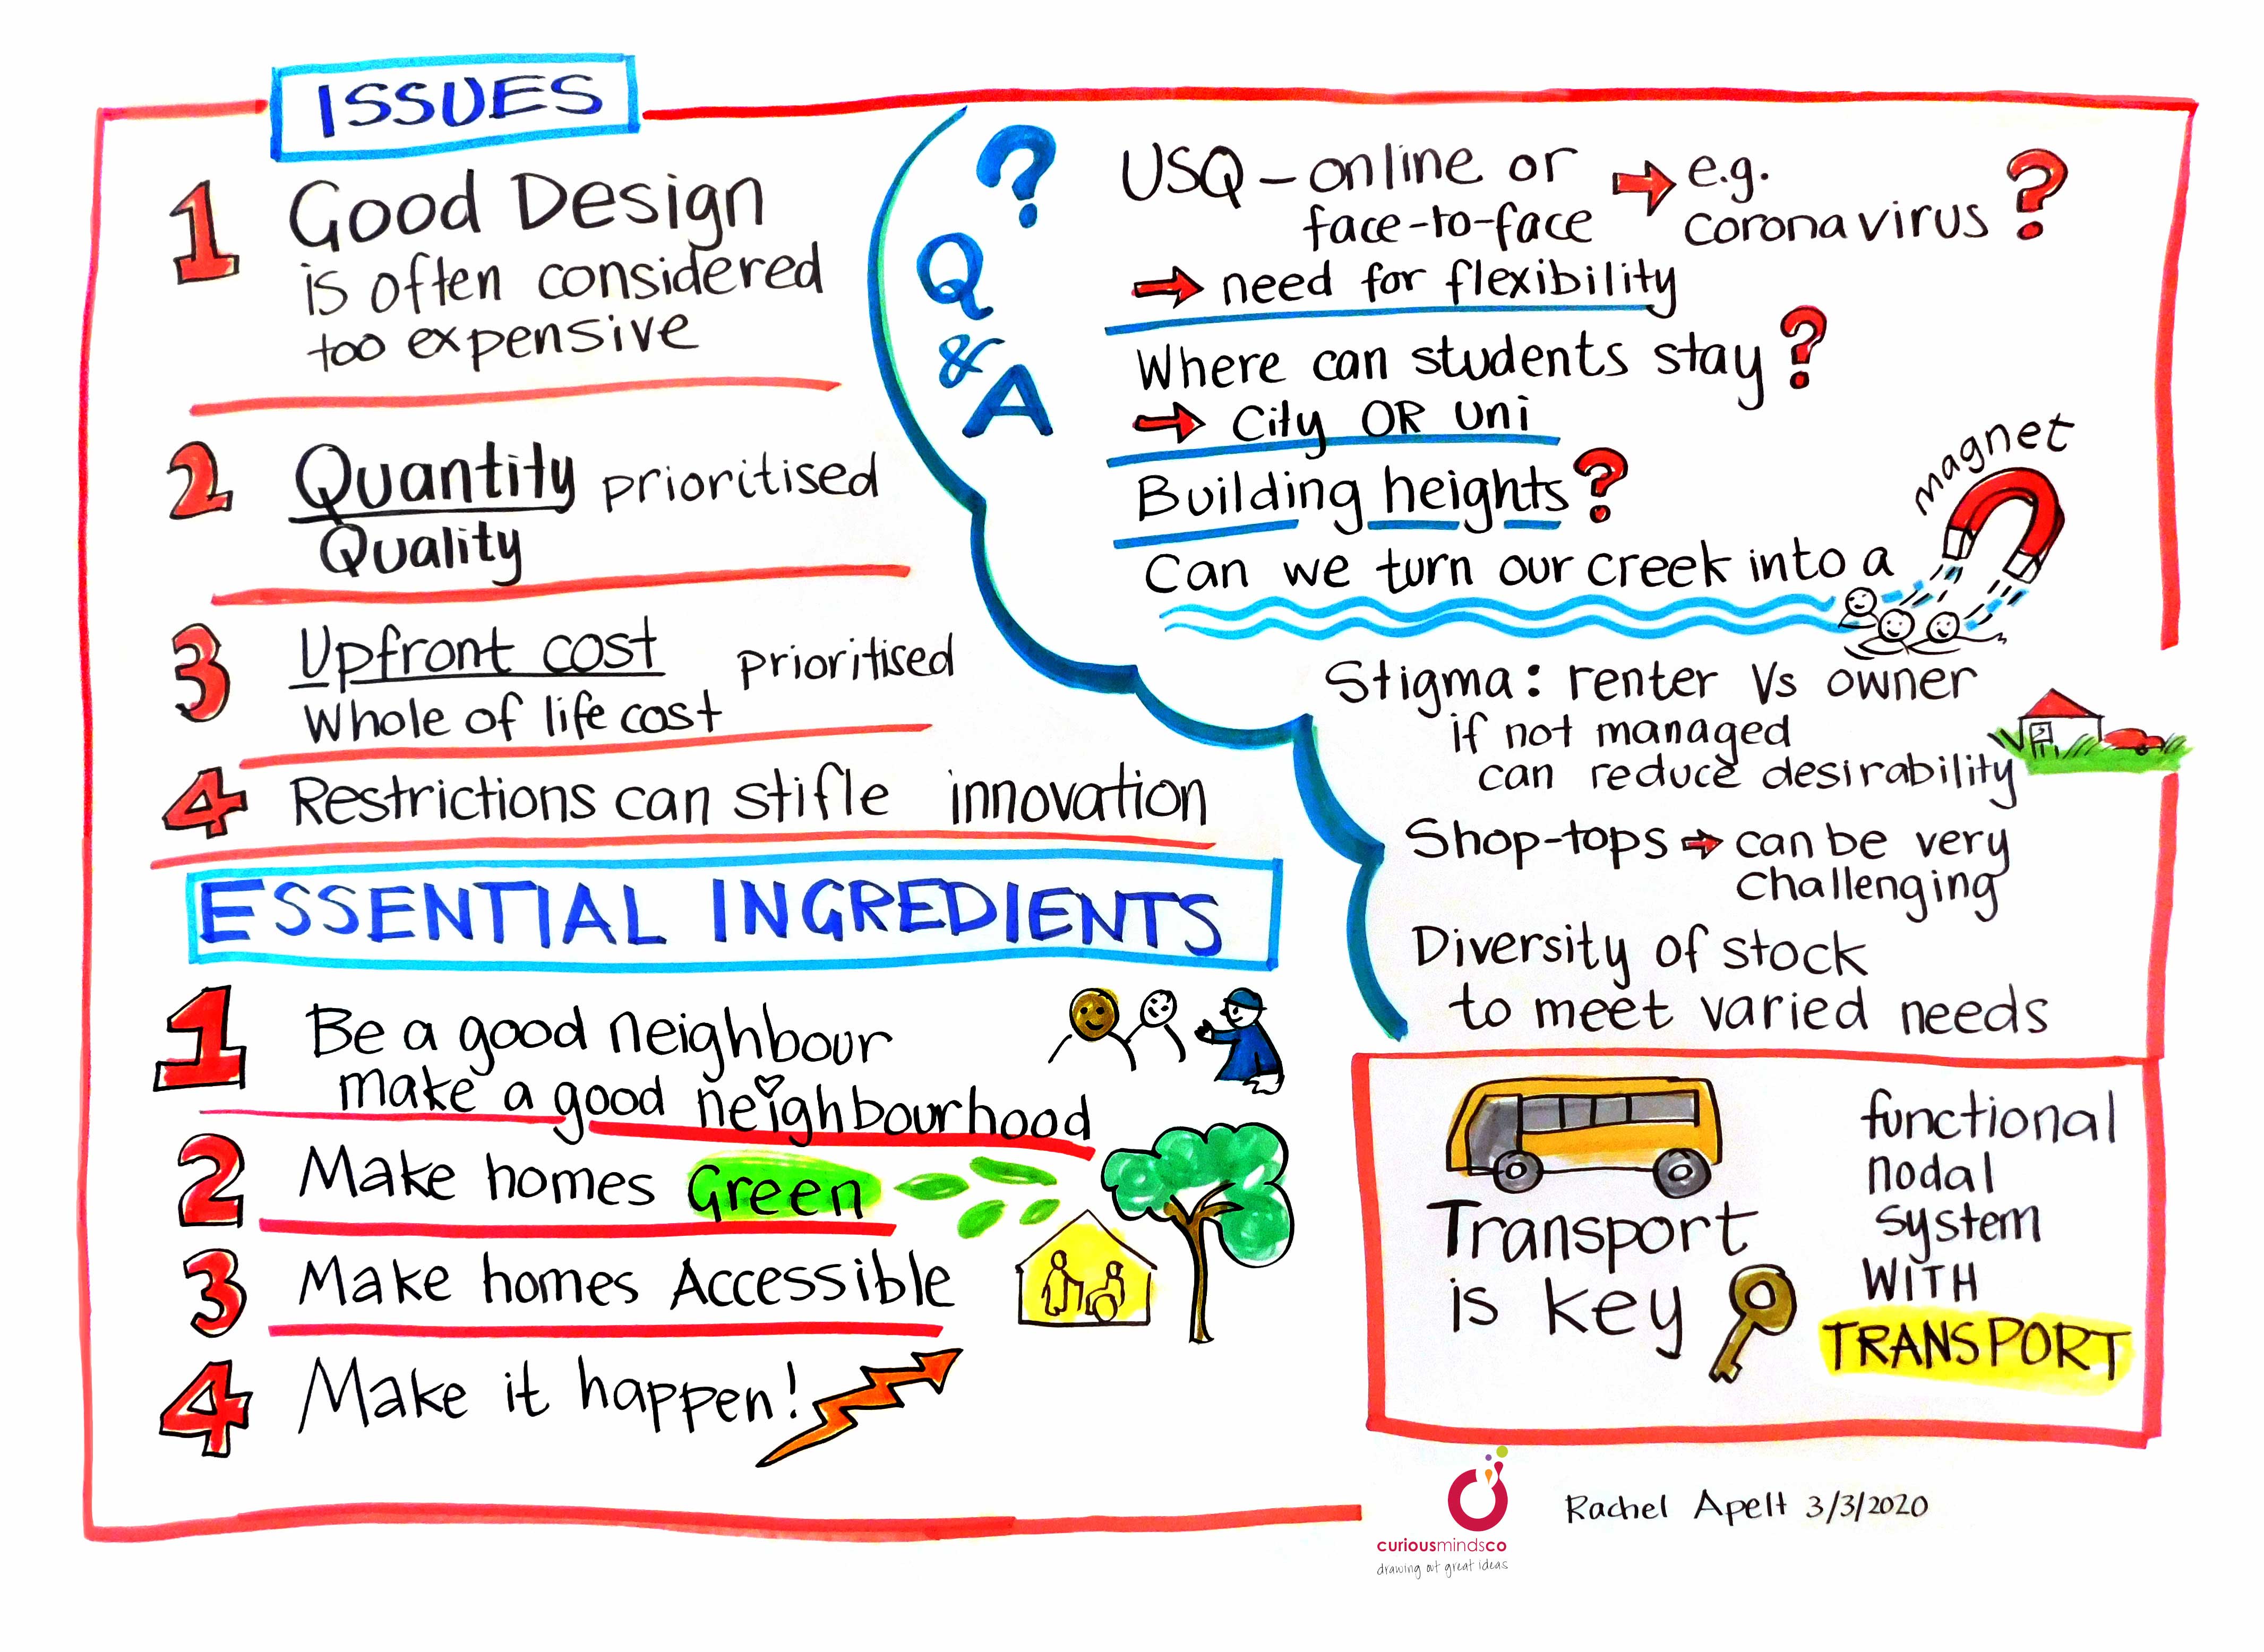 ISSUES
1 Good Design
is often considered
too expensive
2 Quantity prioritised
Quality
3 Upfront cost prioritised
Whole of life cost
4 Restrictions can stifle innovation
ESSENTIAL INGREDIENTS
1 Be a good neighbour
make a good neighbourhood
2 Make homes Green
3 Make homes Accessible
4 Make it happen!
?
Q
&
A
USQ – online or → e.g.
face-to-face coronavirus ?
→ need for flexibility
Where can students stay ?
→ City OR uni
Building heights ?
magnet
Can we turn our creek into a
Stigma: renter Vs owner
if not managed
can reduce desirability
Shop-tops → can be very
challenging
Diversity of stock
to meet varied needs
Transport
is key
functional
nodal
system
WITH
TRANSPORT
curiousmindsco
drawing out great ideas
Rachel Apelt 3/3/2020